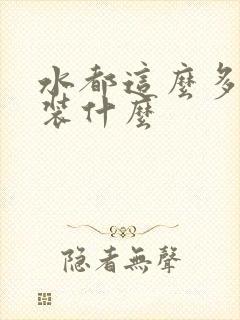 水都這麼多
裝什麼
隐者無聲